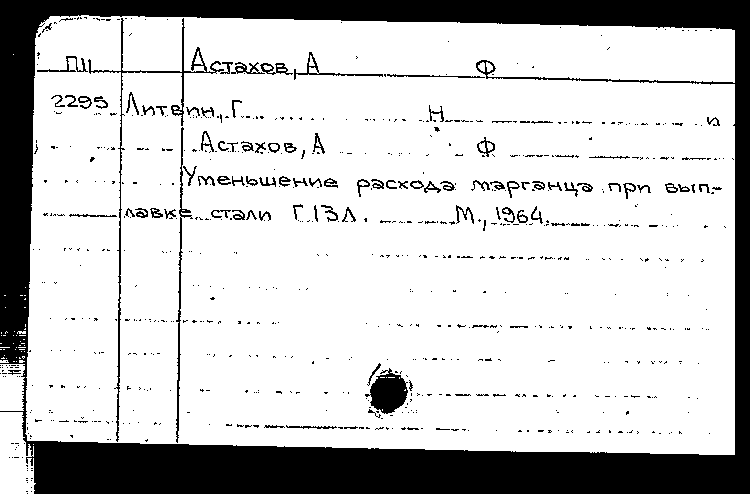 П11 Астахов, А Ф
2295 Литвин, Г. Н п
Астахов, А Ф
Уменьшение расхода марганца при вып-
лавке стали Г13Л. М., 1964.